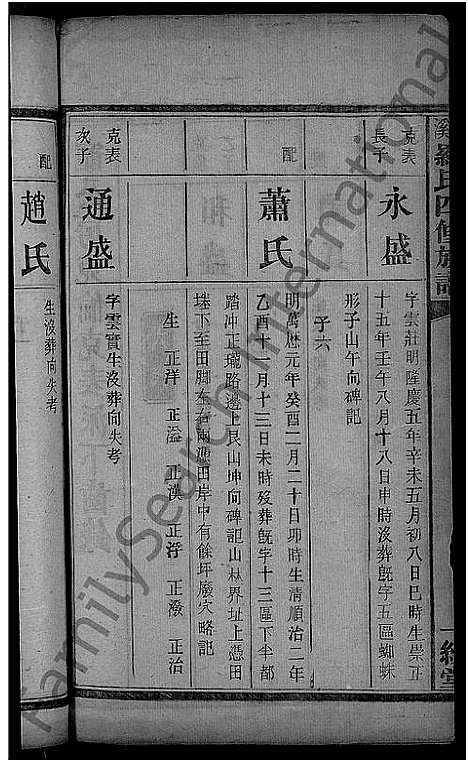 羅氏四修族譜
克表
長子
永盛
字雲莊明隆慶五年辛未五月初八日巳時生崇正
十五年壬午八月十八日申時沒葬旣字五區蜘蛛
形子山午向碑記
子六
配
蕭氏
明萬歷元年癸酉二月二十日卯時生清順治二年
乙酉十一月十三日未時歿葬旣字十三區下半都
踏冲正壠路邊上艮山坤向碑記山林界址上憑田
墈下至田脚左右兩憑田岸中有餘坪廢穴略記
生 正洋 正溢 正漢 正浮 正潑 正治
克表
次子
通盛
字雲實生沒葬向失考
配
趙氏
生沒葬向失考
FamilySearch International